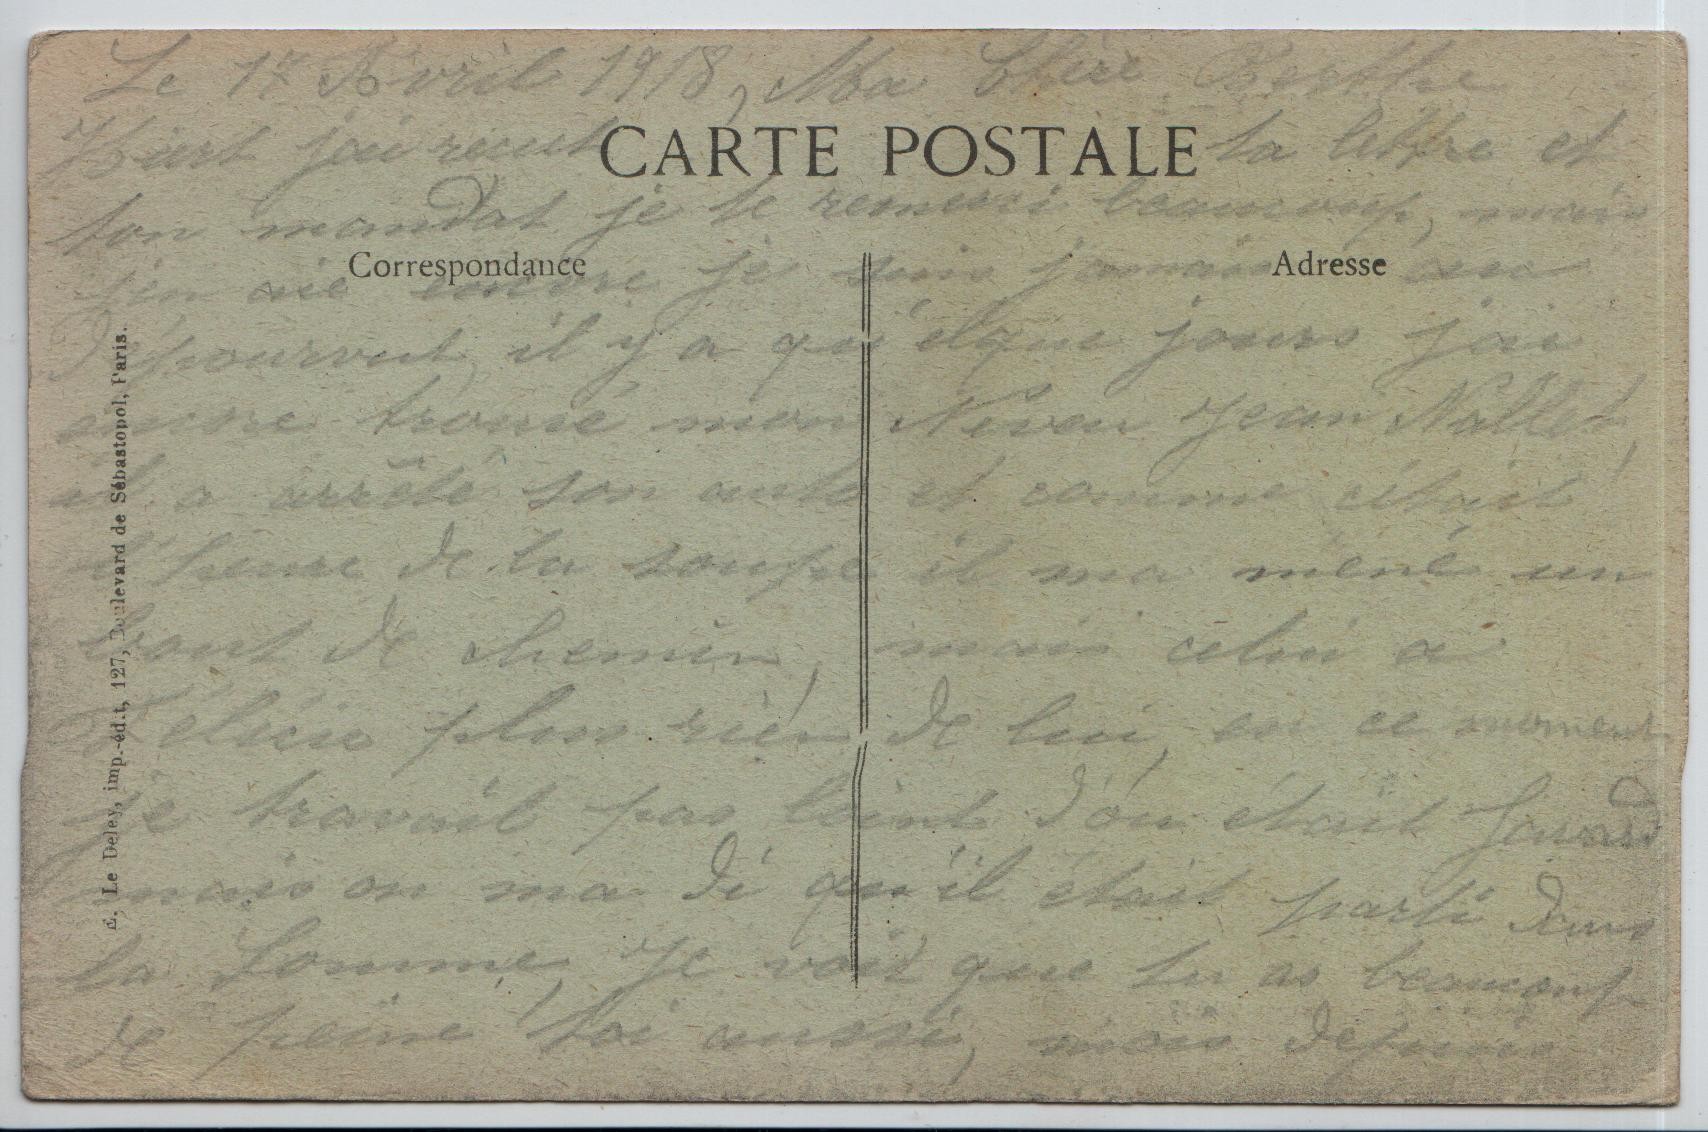 Le 1er Avril 1918, Ma Chère Berthe
Hiert j'ai recut ta lettre et
CARTE POSTALE
ton mandat je te remerci beaucoup, mais
Correspondance
Adresse
j'en aie encore je suis jamais au
dépourvut, il y a qu'elque jours j'ai
encore trouvé mon Neveu Jean Nallet,
il a arrêté son auto et comme c'était
l'heure de la soupe il ma mené un
bout de chemin, mais celui a
Félicie plus rien de lui, en ce moment
je travail pas loint d'ou était
mais on ma di qu'il était parti dans
la Somme, Je voit que tu as beaucoup
de peine toi aussi, mais depuis
E. Le Deley, imp.-édit, 127, Boulevard de Sébastopol, Paris.